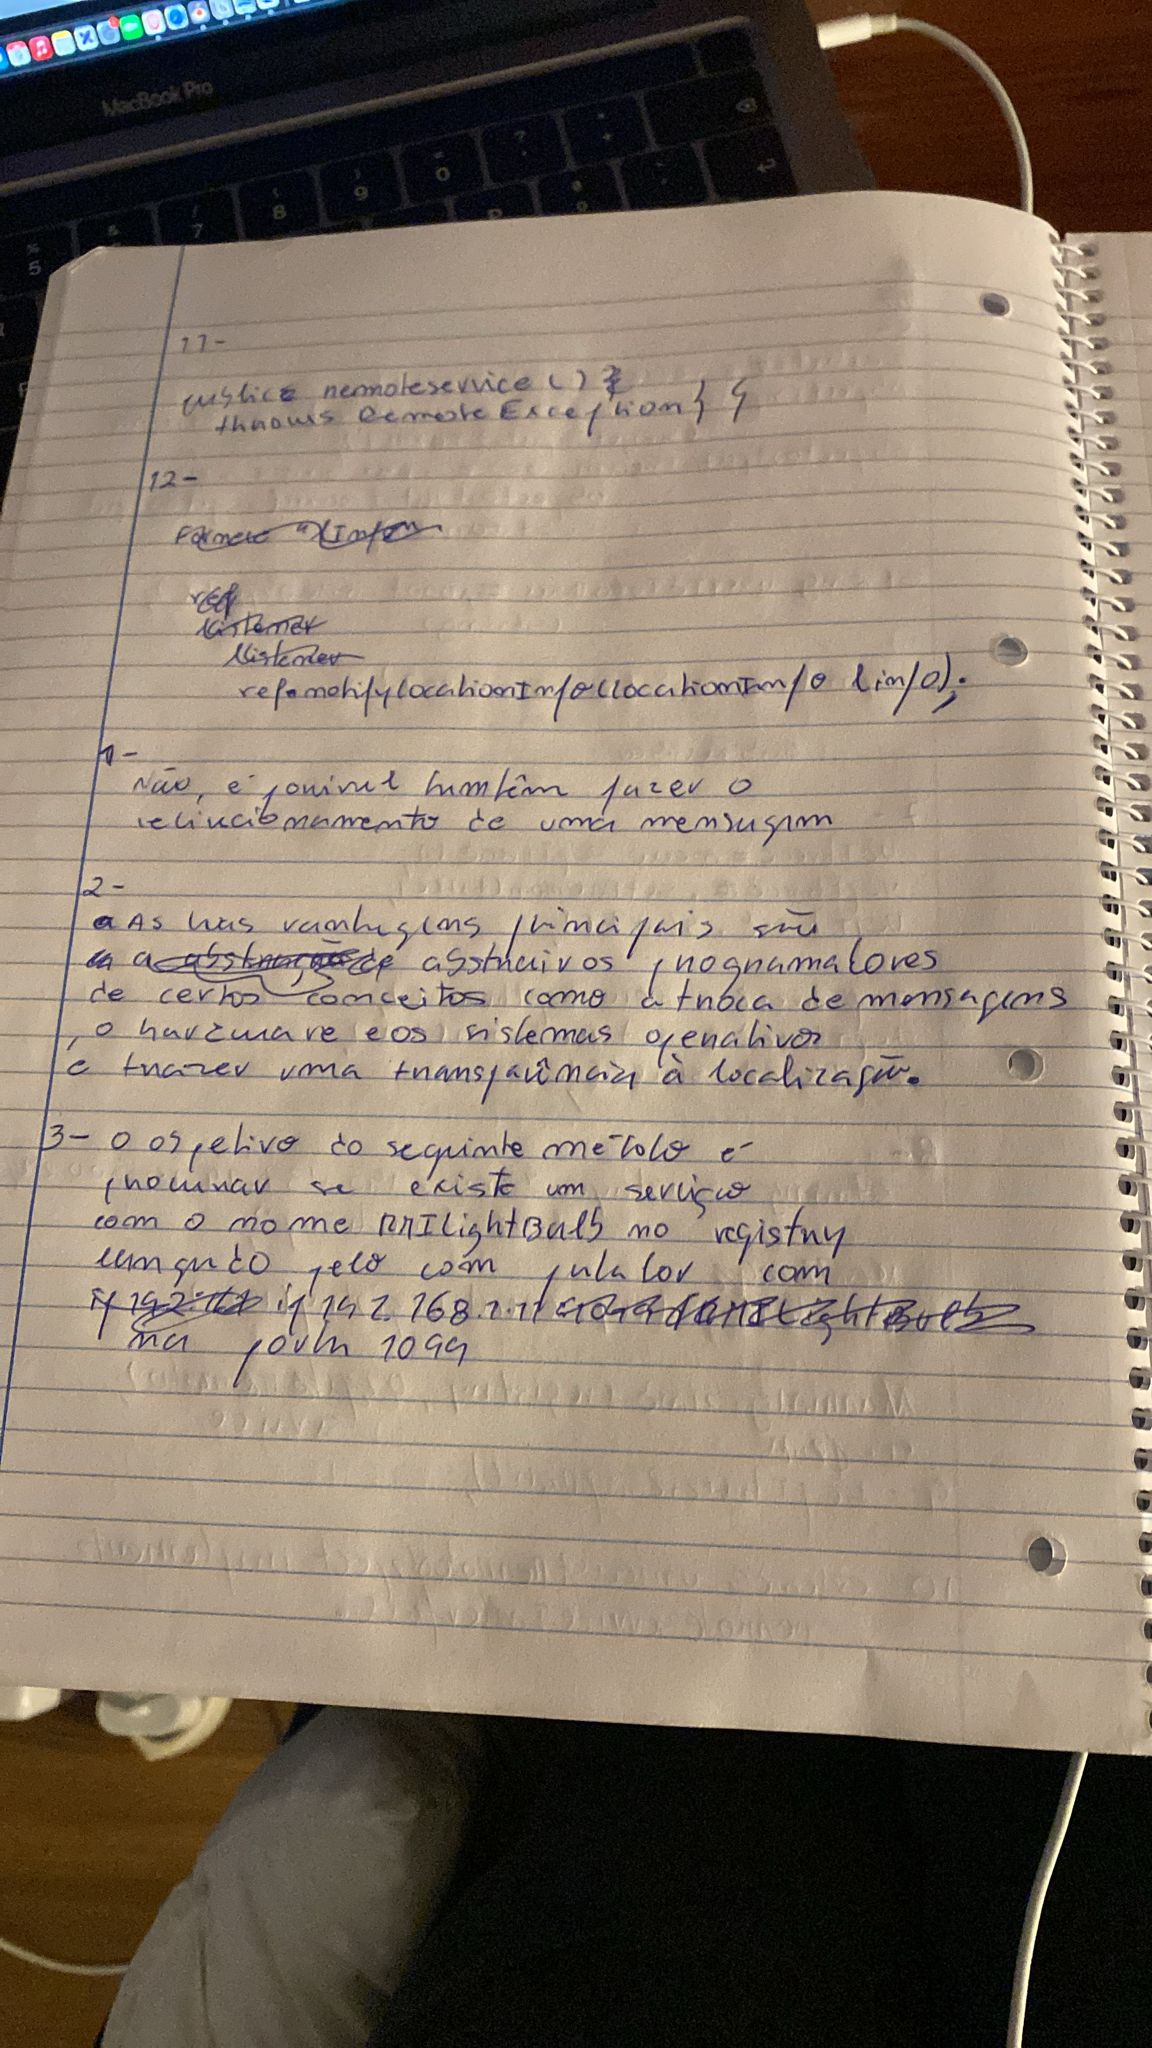 MacBook Pro
11-
public remoteservice () {
throws RemoteException } {
12-
ref
listener
listener
ref.notifyLocationInfo(LocationInfo linfo);
1-
Não, é possivel também fazer o
relacionamento de uma mensagem
2-
As has vantagens principais são
a abstração de abstrair os programadores
de certos conceitos como a troca de mensagens
, o hardware e os sistemas operativos
e trazer uma transparência à localização.
3- O objetivo do seguinte método é
procurar se existe um serviço
com o nome RMILightBulb no registry
lançado pelo computador com
ip 192.168.1.11
na porta 1099